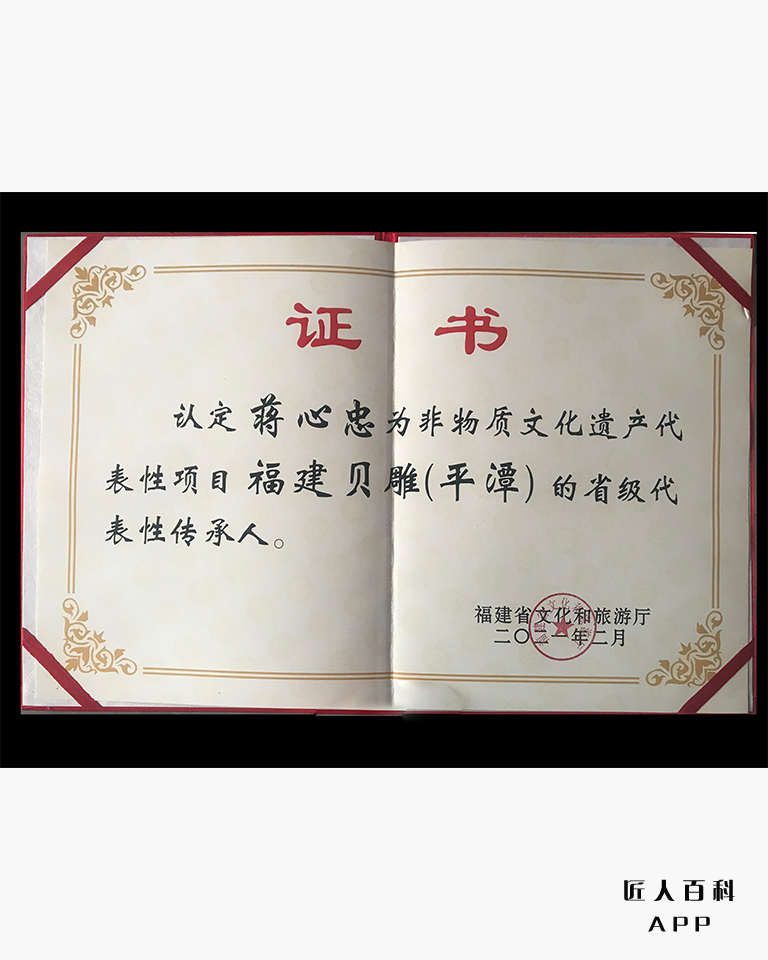 证书
认定蒋心忠为非物质文化遗产代
表性项目福建贝雕(平潭)的省级代
表性传承人。
福建省文化和旅游厅
二〇二一年二月
匠人百科
APP